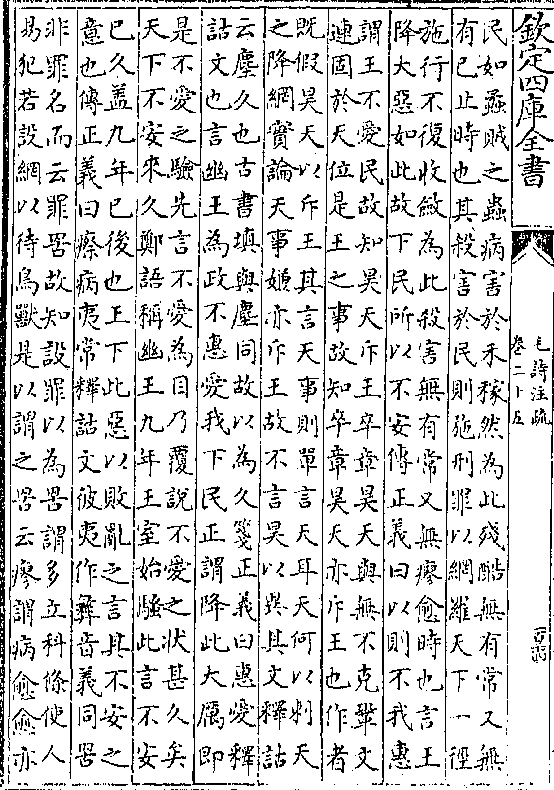 欽定四庫全書
毛詩注疏
卷二十五
民如蟊賊之蟲病害於禾稼然為此殘酷無有常又無
有已止時也其殺害於民則施刑罪以網羅天下一徑
施行不復收斂為此殺害無有常又無瘳愈時也言王
降大惡如此故下民所以不安傳正義曰以則不我惠
謂王不愛民故知昊天斥王卒章昊天與無不克鞏文
連固於天位是王之事故知卒章昊天亦斥王也作者
既假昊天以斥王其言天事則單言天耳天何以刺天
之降網實論天事嫌亦斥王故不言昊以異其文釋詁
云塵久也古書填與塵同故以為久箋正義曰惠愛釋
詁文也言幽王為政不惠愛我下民正謂降此大厲即
是不愛之驗先言不愛為目乃覆說不愛之狀甚久矣
天下不安來久鄭語稱幽王九年王室始騷此言不安
已久蓋九年已後也王下此惡以敗亂之言其不安之
意也傳正義曰瘵病夷常釋詁文彼夷作彝音義同罟
非罪名而云罪罟故知設罪以為罟謂多立科條使人
易犯若設網以待鳥獸是以謂之罟云瘳謂病愈愈亦